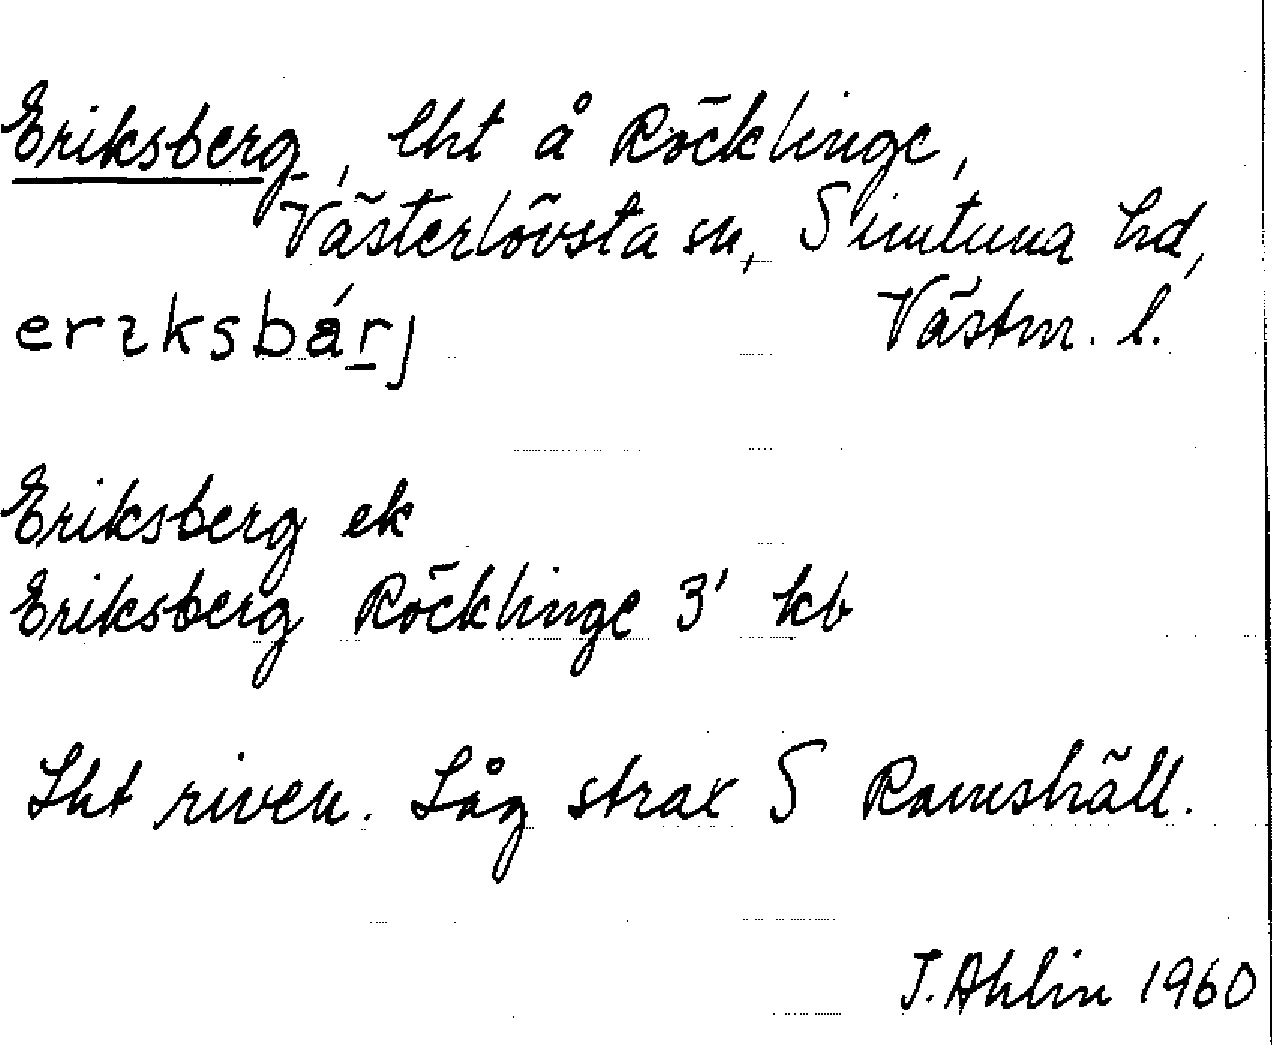 Eriksberg, lht å Röcklinge,
Västerlövsta sn, Simtuna hd,
erɩksbárj Västm. l.
Eriksberg ek
Eriksberg Röcklinge 3' kb
Lht riven. Låg strax S Ramshäll.
J. Ahlin 1960